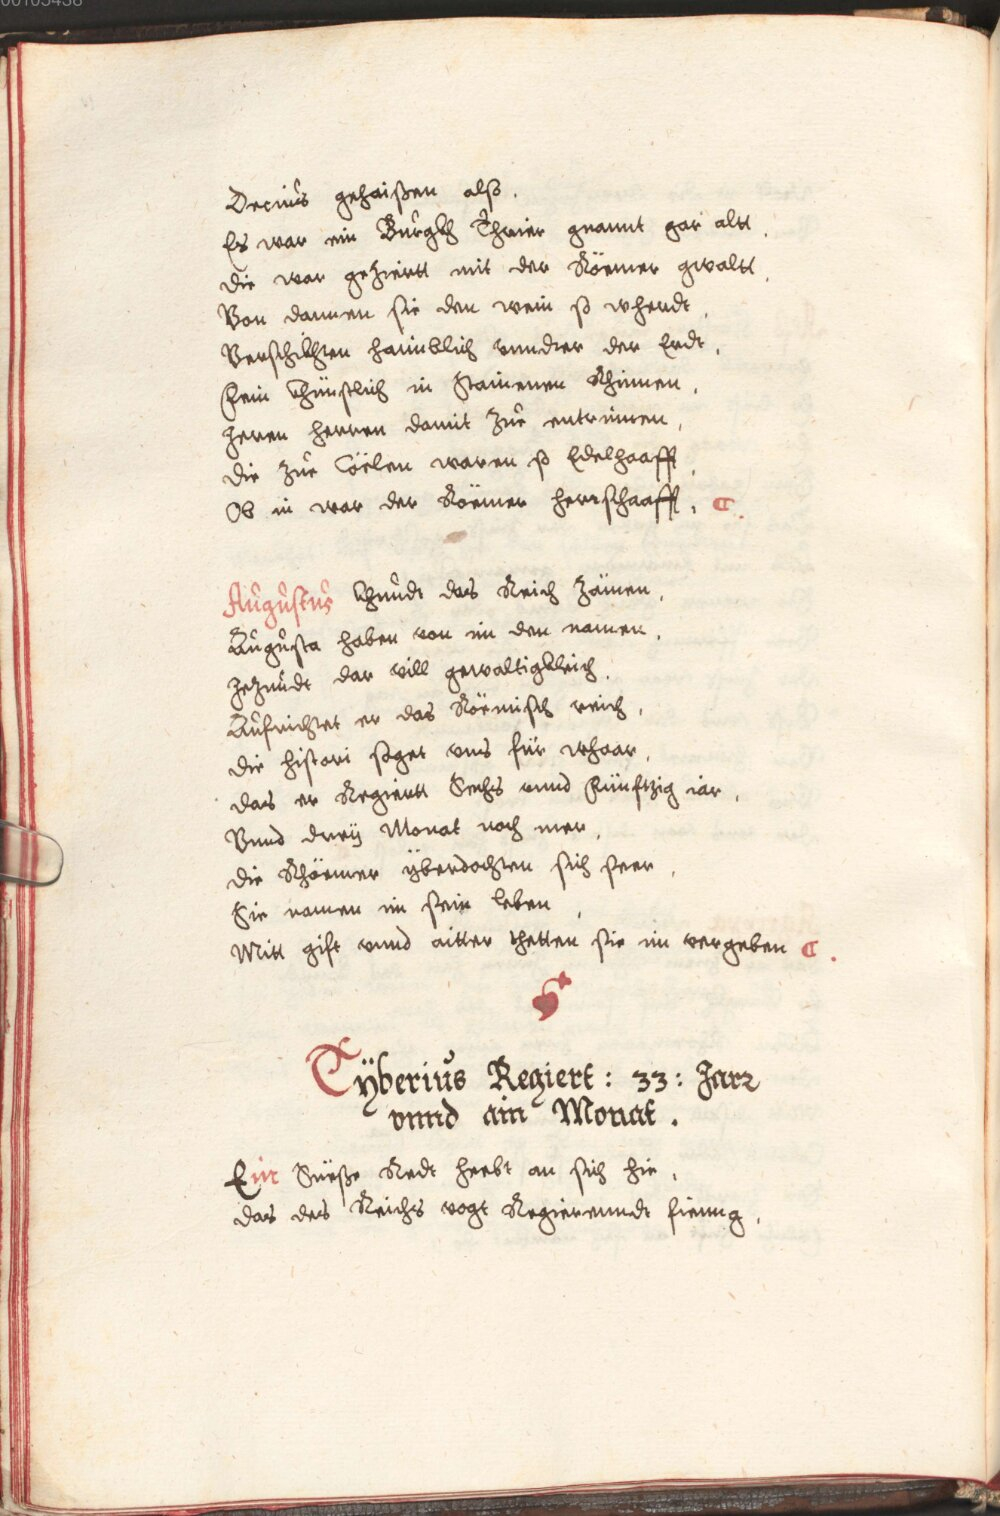 00105438
Decius gehaißen alß.
Es war ein Burgkh Thrier genannt gar altt.
die war geziertt mit der Röemer gwaltt.
Von dannen sie den wein so wherdt,
Verschikhten haimblich vnndter der Erdt,
Gein khünstlich in Stainenen Rhinnen,
Jeren herren damit Zue entrinnen,
die Zue Cöelen waren so Edelhaafft,
Ob in war der Röemer herrschaafft.
Augustus khundt das Reich Zämen,
Augusta haben von im den namen,
Jezundt dar vill gewaltigkleich,
Aufrichtet er das Röemisch reich,
die histori saget vns für whaar,
das er Regiertt Sechs vnnd Fünftzig iar,
Vnnd dreÿ Monat noch mer,
die Rhöemer ÿberdachten sich seer,
Sie namen im sein leben,
Mitt gift vnnd aitter thetten sie im vergeben.
Tÿberius Regiert : 33 : Jarr
vnnd ain Monat.
Ein Süeße Redt hebt an sich hie,
das des Reichs vogt Regierenndt fienng,